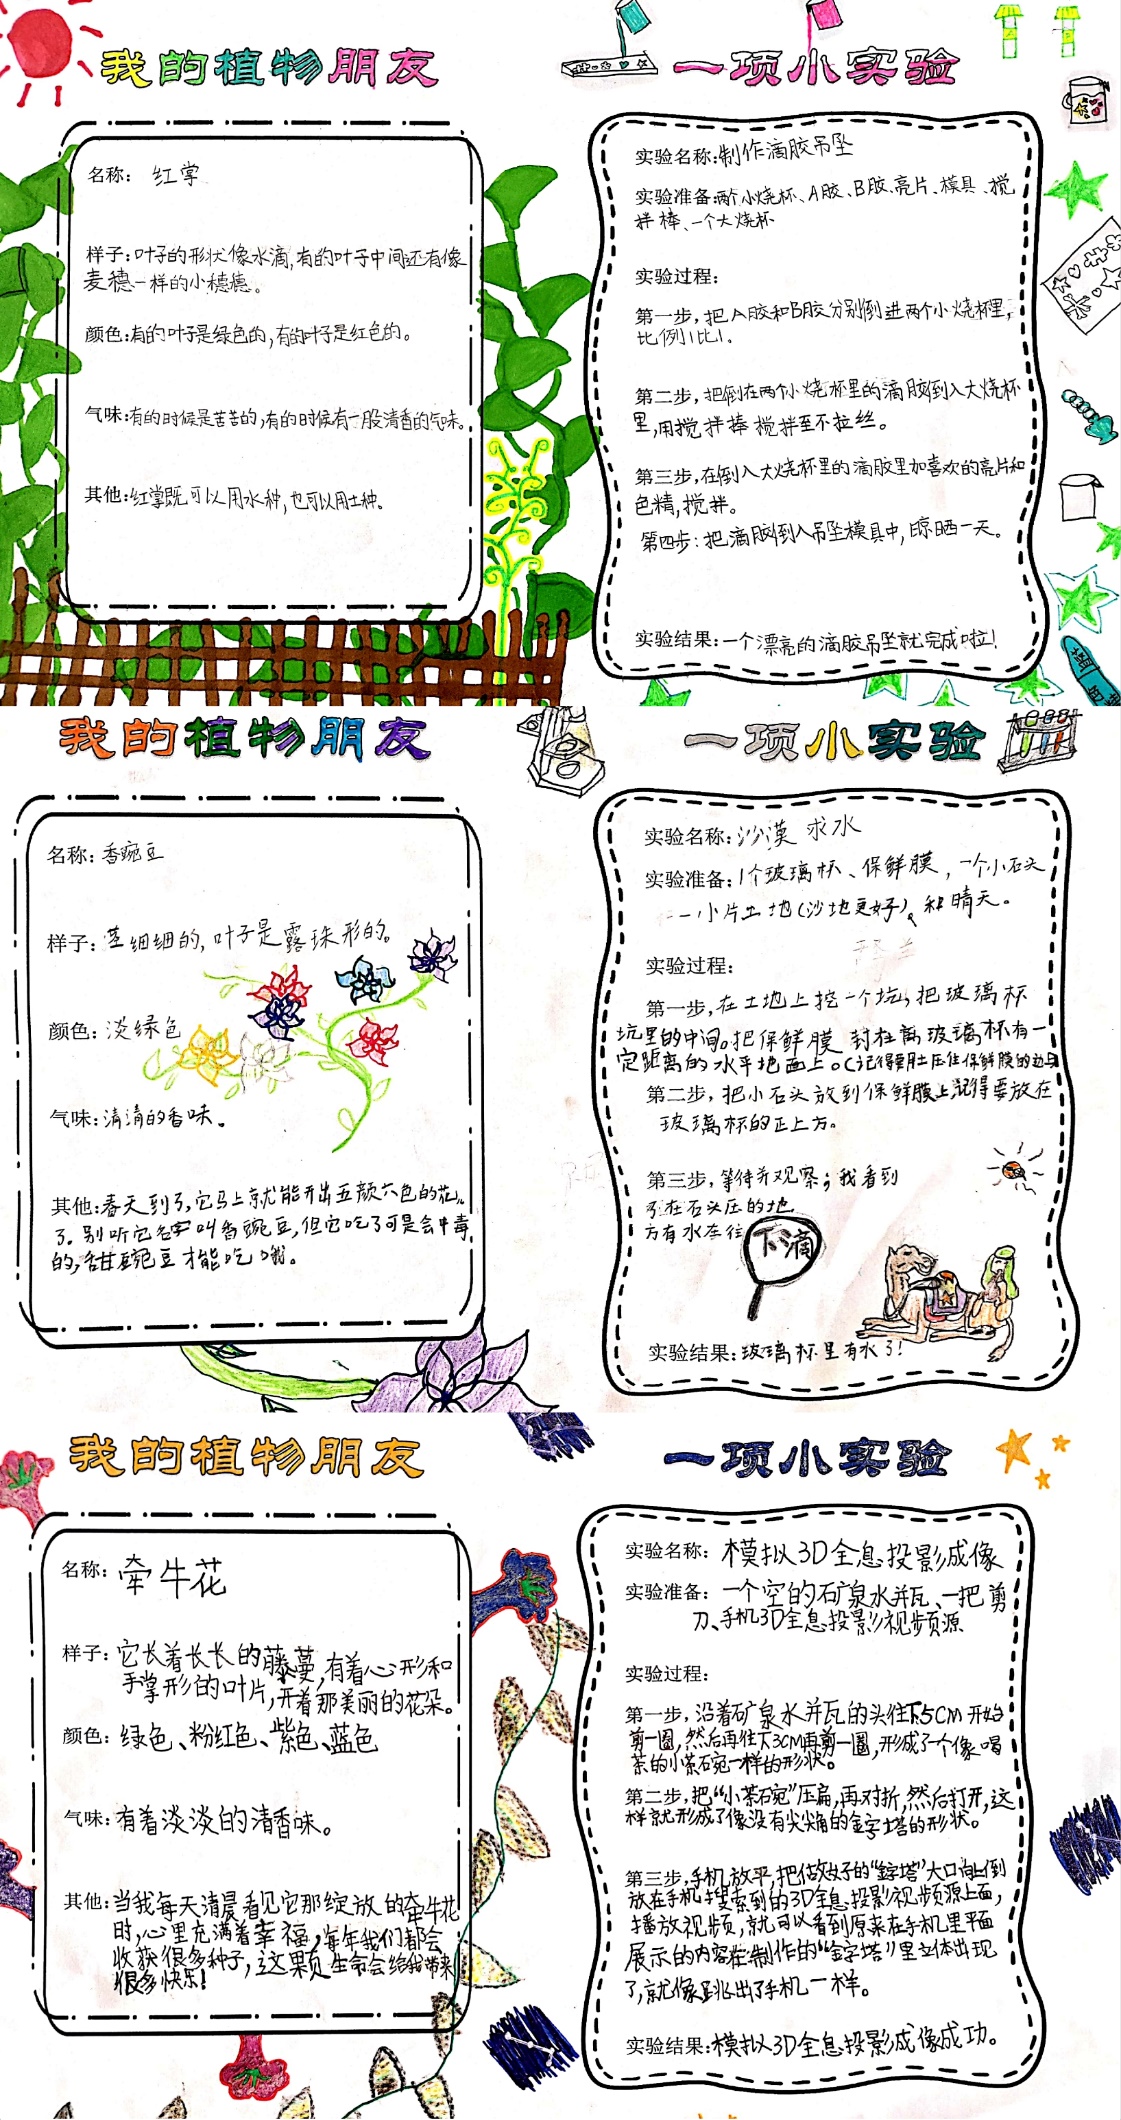 我的植物朋友
名称：红掌
样子：叶子的形状像水滴,有的叶子中间还有像
麦穗一样的小穗穗。
颜色：有的叶子是绿色的,有的叶子是红色的。
气味：有的时候是苦苦的,有的时候有一股清香的气味。
其他：红掌既可以用水种,也可以用土种。
一项小实验
实验名称：制作滴胶吊坠
实验准备：两个小烧杯、A胶、B胶、亮片、模具、搅
拌棒、一个大烧杯
实验过程：
第一步,把A胶和B胶分别倒进两个小烧杯里,
比例1比1。
第二步,把倒在两个小烧杯里的滴胶倒入大烧杯
里,用搅拌棒搅拌至不拉丝。
第三步,在倒入大烧杯里的滴胶里加喜欢的亮片和
色精,搅拌。
第四步：把滴胶倒入吊坠模具中,晾晒一天。
实验结果：一个漂亮的滴胶吊坠就完成啦!
我的植物朋友
名称：香豌豆
样子：茎细细的,叶子是露珠形的。
颜色：淡绿色
气味：清清的香味。
其他：春天到了,它马上就能开出五颜六色的花
了。别听它名字叫香豌豆,但它吃了可是会中毒
的,甜豌豆才能吃哦。
一项小实验
实验名称：沙漠求水
实验准备：1个玻璃杯、保鲜膜,一个小石头
一小片土地(沙地更好)、和晴天。
实验过程：
第一步,在土地上挖一个坑,把玻璃杯
坑里的中间。把保鲜膜封在离玻璃杯有一
定距离的水平地面上。(记得要用土压住保鲜膜的边
第二步,把小石头放到保鲜膜上,记得要放在
玻璃杯的正上方。
第三步,等待并观察;我看到
了在石头压的地
方有水在往下滴
实验结果：玻璃杯里有水了!
我的植物朋友
名称：牵牛花
样子：它长着长长的藤蔓,有着心形和
手掌形的叶片,开着那美丽的花朵。
颜色：绿色、粉红色、紫色、蓝色
气味：有着淡淡的清香味。
其他：当我每天清晨看见它那绽放的牵牛花
时,心里充满着幸福,每年我们都会
收获很多种子,这颗生命会给我带来
很多快乐!
一项小实验
实验名称：模拟3D全息投影成像
实验准备：一个空的矿泉水瓶、一把剪
刀、手机3D全息投影视频源
实验过程：
第一步,沿着矿泉水瓶的头往下5CM开始
剪一圈,然后再往下3CM再剪一圈,形成了一个像喝
茶的小茶碗一样的形状。
第二步,把“小茶碗”压扁,再对折,然后打开,这
样就形成了像没有尖尖角的金字塔的形状。
第三步,手机放平,把做好的“金字塔”大口朝上倒
放在手机搜索到的3D全息投影视频源上面,
播放视频,就可以看到原来在手机里平面
展示的内容在制作的“金字塔”里立体出现
了,就像跳出了手机一样。
实验结果：模拟3D全息投影成像成功。